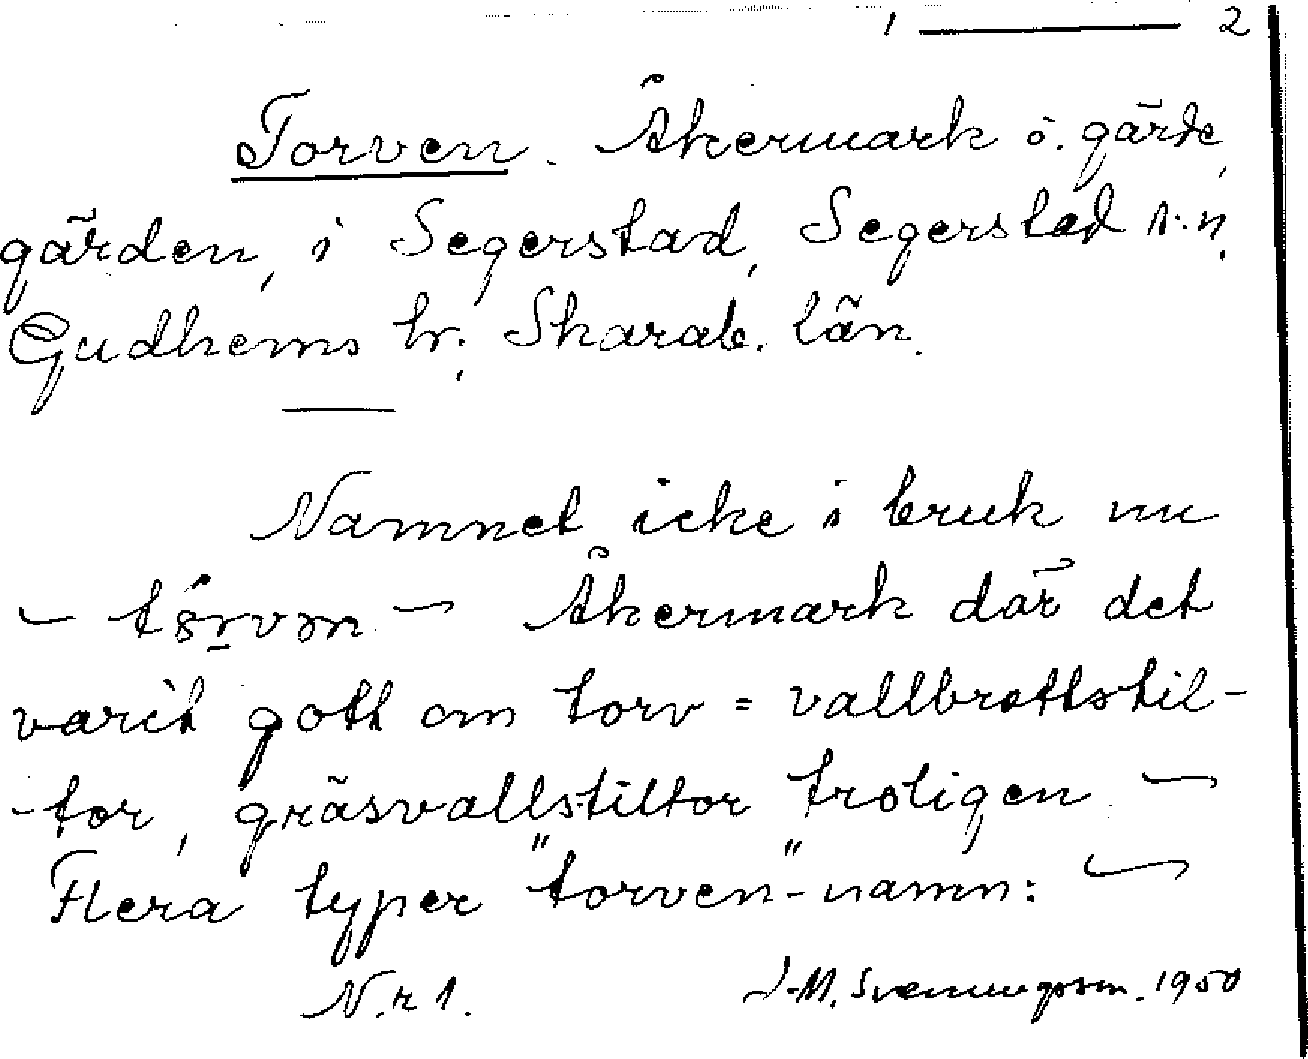 1 ——— 2
Torven. Åkermark ö. gärde,
gärden, i Segerstad, Segerstad s:n,
Gudhems hr; Skarab. län.
Namnet icke i bruk nu
Åkermark där det
varit gott om torv = vallbrottstil-
-tor, gräsvallstiltor troligen —
Flera typer "torven"-namn: —
N.r 1. J.M. Svenningsson. 1950